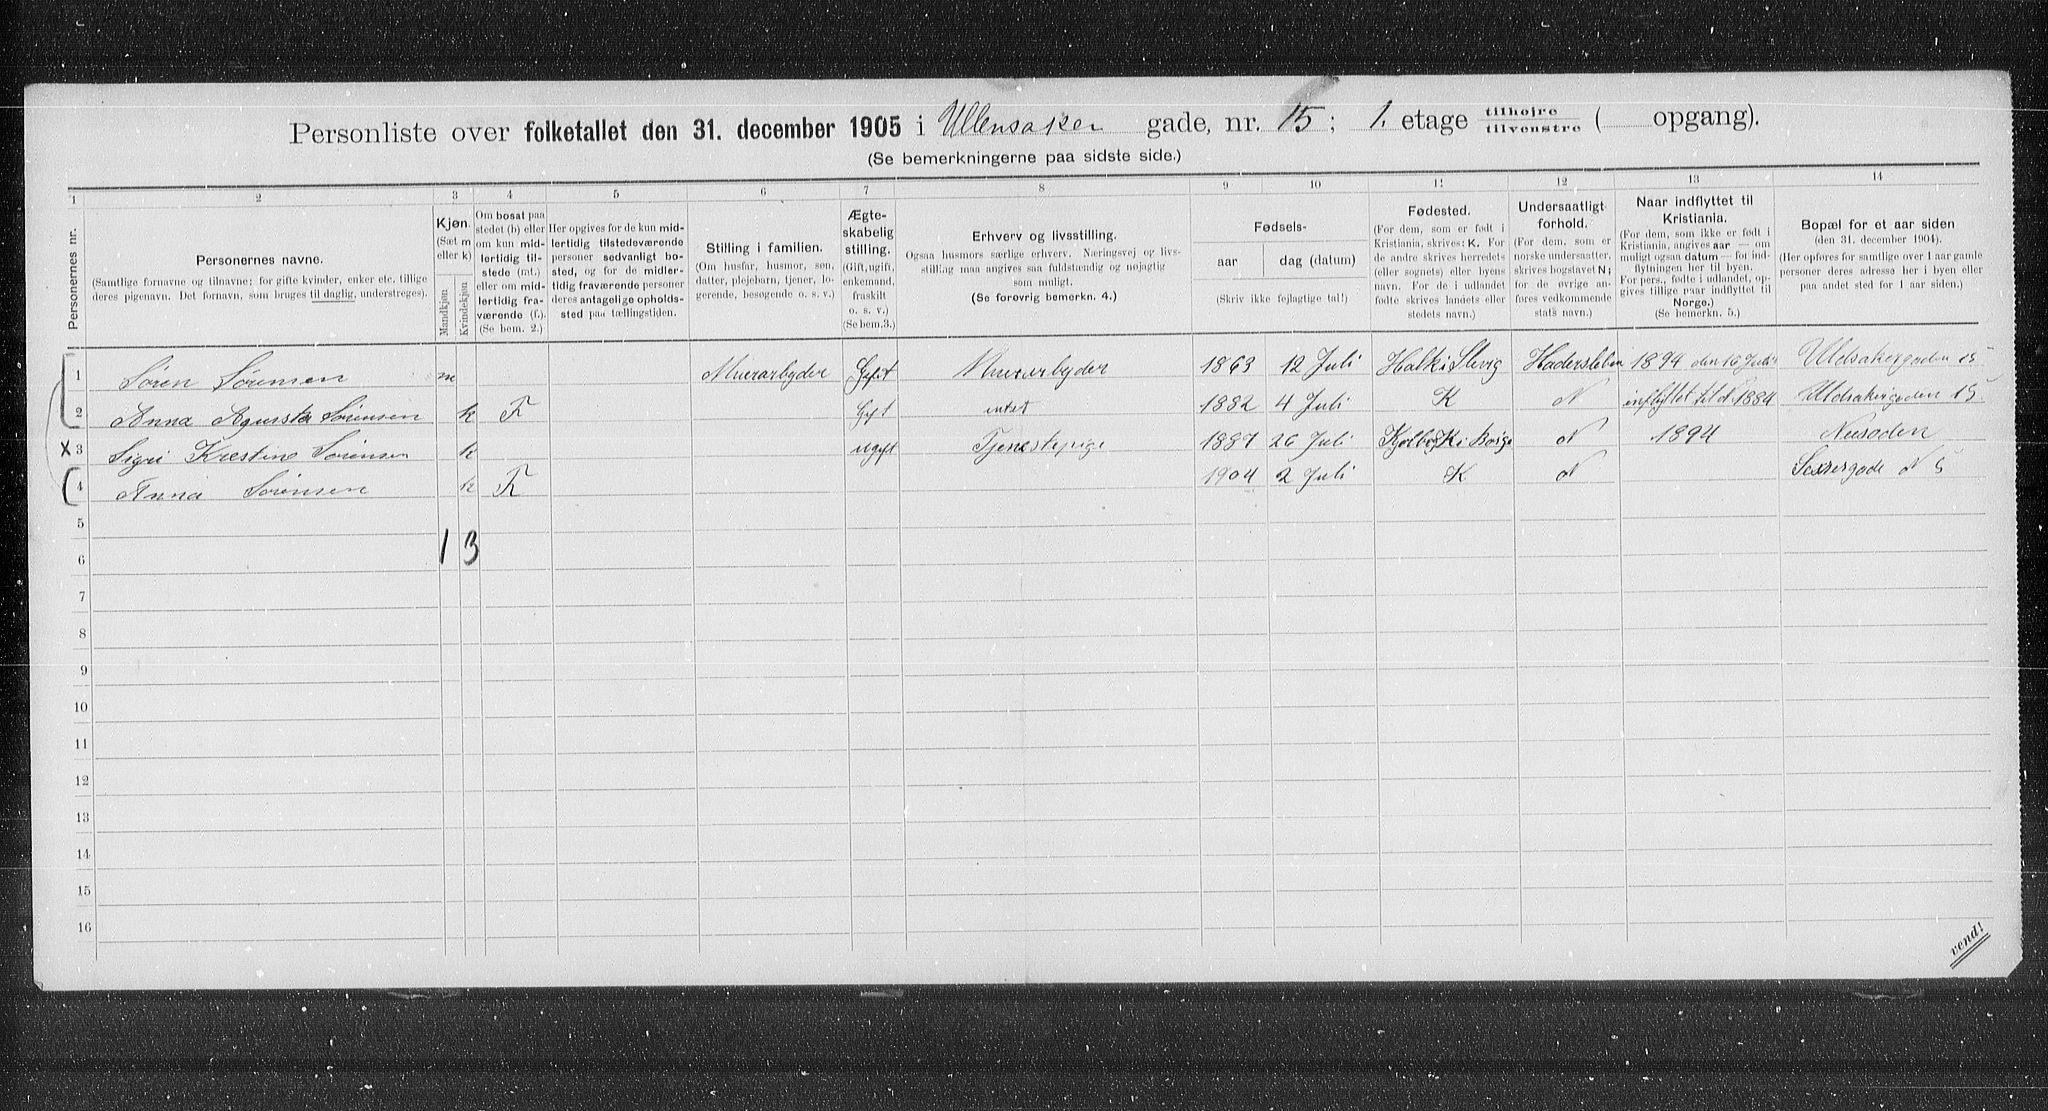 Personliste over folketallet den 31. december 1905 i Ullensaker gade, nr. 15; 1. etage tilhøjre tilvenstre ( opgang).
(Se bemerkningerne paa sidste side.)
1 2 3 4 5 6 7 8 9 10 11 12 13 14
Personernes nr.
Personernes navne.
(Samtlige fornavne og tilnavne; for gifte kvinder, enker etc. tillige
deres pigenavn. Det fornavn, som bruges til daglig, understreges).
Kjøn.
(Sæt m
eller k)
Mandkjøn
Kvindekjøn
Om bosat paa
stedet (b) eller
om kun mid-
lertidig til-
stede (mt.)
eller om mid-
lertidig fra-
værende (f.).
(Se bem. 2.)
Her opgives for de kun mid-
lertidig tilstedeværende
personer sedvanligt bo-
sted, og for de midler-
tidig fraværende personer
deres antagelige opholds-
sted paa tællingstiden.
Stilling i familien.
(Om husfar, husmor, søn,
datter, plejebarn, tjener, lo-
gerende, besøgende o. s. v.)
Ægte-
skabelig
stilling.
(Gift, ugift,
enkemand,
fraskilt
o. s. v.)
(Se bem. 3.)
Erhverv og livsstilling.
Ogsaa husmors særlige erhverv. Næringsvej og livs-
stilling maa angives saa fuldstændig og nøjagtig
som muligt.
(Se forøvrig bemerkn. 4.)
Fødsels-
aar
dag (datum)
(Skriv ikke fejlagtige tal!)
Fødested.
(For dem, som er født i
Kristiania, skrives: K. For
de andre skrives herredets
(eller sognets) eller byens
navn. For de i udlandet
fødte skrives landets eller
stedets navn.)
Undersaatligt
forhold.
(For dem, som er
norske undersaatter,
skrives bogstavet N;
for de øvrige an-
føres vedkommende
stats navn.)
Naar indflyttet til
Kristiania.
(For dem, som ikke er født i
Kristiania, angives aar — om
muligt ogsaa datum — for ind-
flytningen her til byen.
For pers., fødte i udlandet, op-
gives tillige naar indflyttet til
Norge.)
(Se bemerkn. 5.)
Bopæl for et aar siden
(den 31. december 1904).
(Her opføres for samtlige over 1 aar gamle
personer deres adresse her i byen eller
paa andet sted for 1 aar siden.)
1 Søren Sørensen m Murarbyder Gift Murarbyder 1863 12 Juli Halk i Slevig Hadersleben 1894 den 16 Juli Uldsakergaden 15
2 Anna Agusta Sørensen k F Gift intet 1882 4 Juli K N inflyttet til d. 1884 Uldsakergaden 15
X 3 Sigri Krestine Sørensen k ugift Tjenestepige 1887 26 Juli N 1894 Nesoden
4 Anna Sørensen k F 1904 2 Juli K N N 5
5
1 3
6
7
8
9
10
11
12
13
14
15
16
vend!